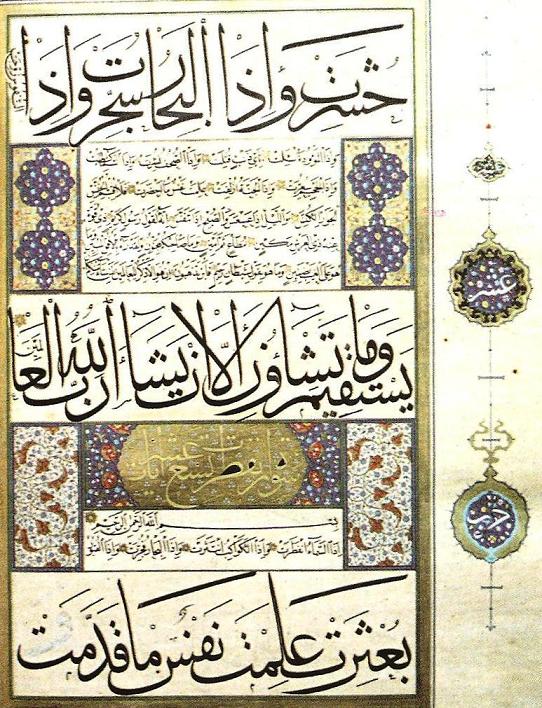 حشرت واذا البحار سجرت واذا
النفوس زوجت
واذا الموؤدة سئلت باي ذنب قتلت واذا الصحف نشرت واذا السماء كشطت
واذا الجحيم سعرت واذا الجنة ازلفت علمت نفس ما احضرت فلا اقسم بالخنس
الجوار الكنس والليل اذا عسعس والصبح اذا تنفس انه لقول رسول كريم ذي قوة
عند ذي العرش مكين مطاع ثم امين وما صاحبكم بمجنون ولقد رآه بالافق المبين
وما هو على الغيب بضنين وما هو بقول شيطان رجيم فاين تذهبون ان هو الا ذكر للعالمين لمن شاء منكم ان
يستقيم وما تشاؤن الا ان يشاء الله رب العالمين
سورة انفطرت تسع عشر
بسم الله الرحمن الرحيم
اذا السماء انفطرت واذا الكواكب انتثرت واذا البحار فجرت واذا القبور
بعثرت علمت نفس ما قدمت
عشر
حزب